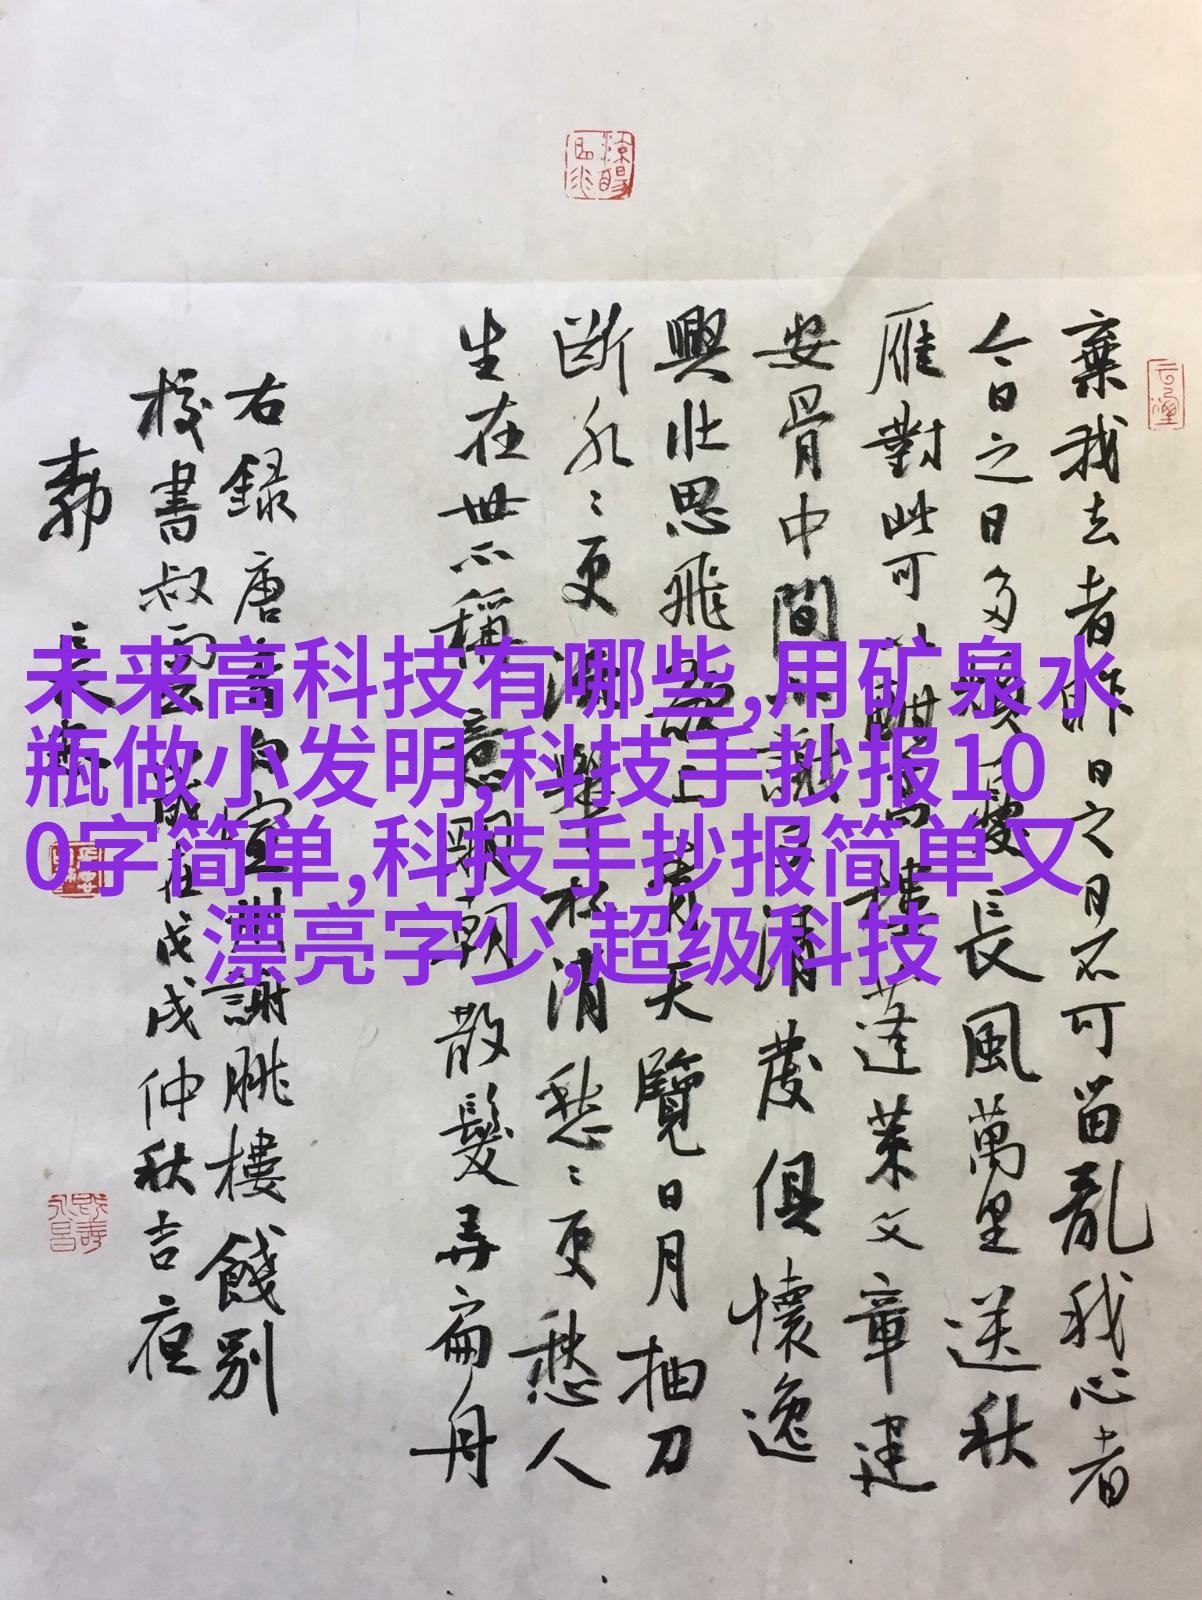 棄我去者昨日之日不可留亂我心者
今日之日多煩憂長風萬里送秋
雁對此可以酣高樓蓬萊文章建
安骨中間小謝又清發俱懷逸
興壯思飛欲上青天覽日月抽刀
斷水〻更流舉杯消愁〻更愁人
生在世不稱意明朝散髮弄扁舟
右錄唐李白宣州謝朓樓餞別
校書叔雲歲在戊戌仲秋吉夜
未来高科技有哪些,用矿泉水
瓶做小发明,科技手抄报10
0字简单,科技手抄报简单又
漂亮字少,超级科技